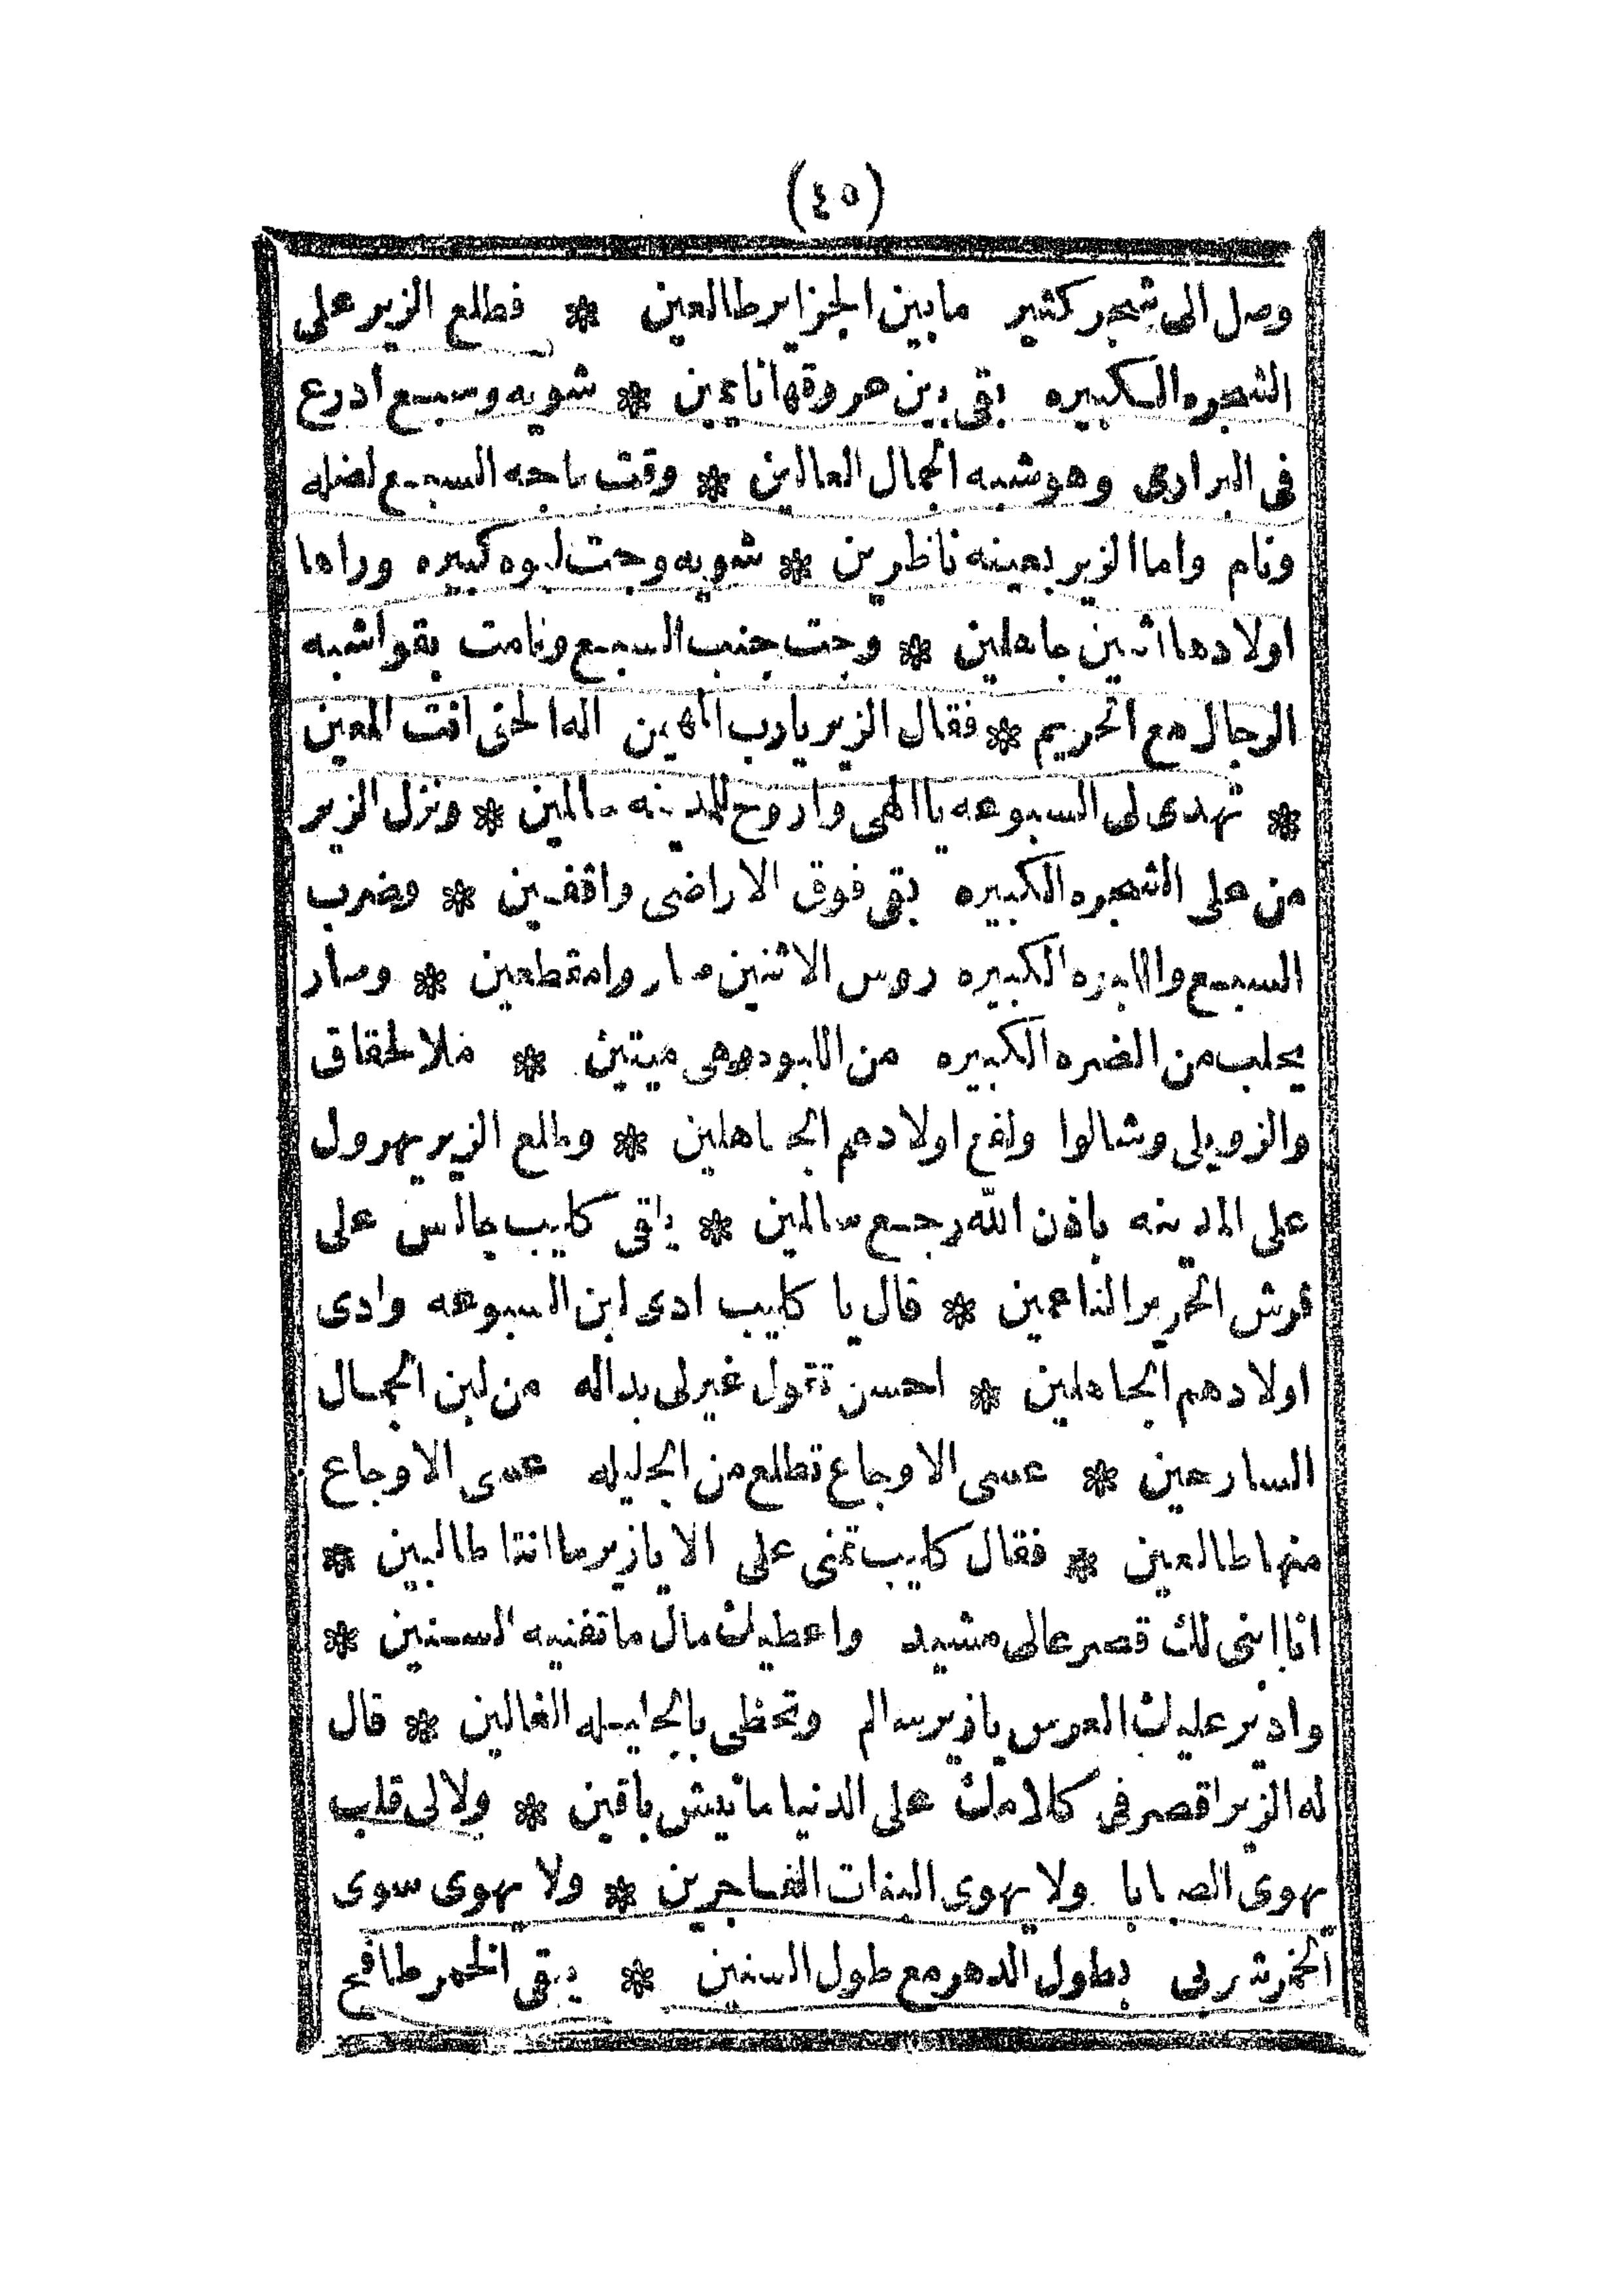 (٤٥)
وصل الى شجر كثير مابين الجزاير طالعين * فطلع الزير على
الشجره الكبيره بقى بين عروقها نايمين * شويه وسبع ادرع
فى البرارى وهو شبه الجمال العالين * وقت ماجه السبع لضله
ونام واما الزير بعينه ناظرين * شويه وجت لبوه كبيره وراها
اولادها اثنين جاهلين * وجت جنب السبع ونامت بقوا شبه
الرجال مع الحريم * فقال الزير يارب المهين اله الحق انت المعين
* تهدى لى السبوعه يا الهى واروح للمدينه سالمين * ونزل الزير
من على الشجره الكبيره بقى فوق الاراضى واقفين * وضرب
السبع واللبوه الكبيره روس الاثنين صاروا مقطعين * وصار
يحلب من الضره الكبيره من اللبوه وهى ميتين * ملا لحقاق
والزويلى وشالوا ولفع اولادهم الجاهلين * وطلع الزير يهرول
على المدينه باذن الله رجع سالمين * يلقى كليب جالس على
فرش الحرير الناعمين * قال يا كليب ادى لبن السبوعه وادى
اولادهم الجاهلين * احسن تقول غيرلى بداله من لبن الجمال
السارحين * عسى الاوجاع تطلع من الجليله عسى الاوجاع
منها طالعين * فقال كليب تمنى على الا يازير ما انتا طالبين *
انا ابنى لك قصر عالى مشيد واعطيك مال ماتفنيه السنين *
وادير عليك العرس يازير سالم وتحظى بالجليله الغالين * قال
له الزير اقصر فى كلامك على الدنيا مانيش باقين * ولا لى قلب
يهوى الصبايا ولا يهوى البنات الفاجرين * ولا يهوى سوى
الخمر شربى بطول الدهر مع طول السنين * يبقى الخمر طافح